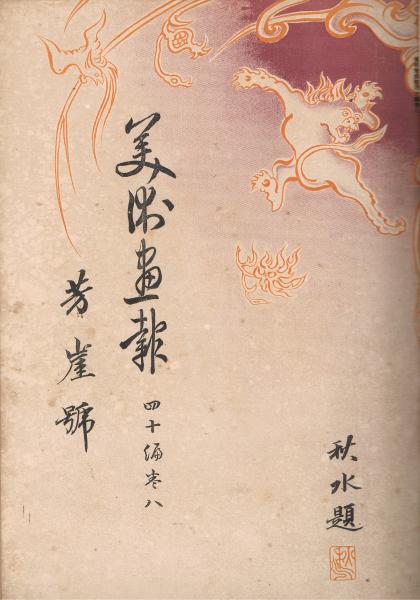 美術畫報
四十編卷八
芳崖號
秋水題